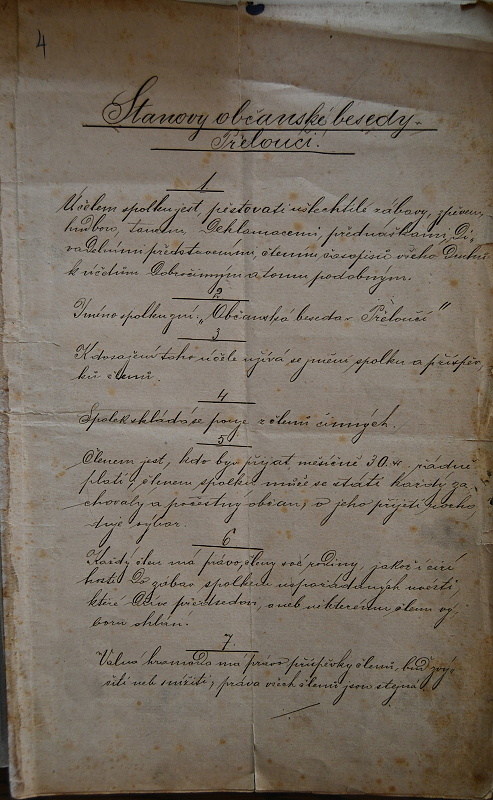 4
Stanovy občanské besedy v
Přelouči.
1
Účelem spolku jest, pěstovati ušlechtilé zábavy, zpěvem,
hudbou, tancem, Deklamacemi, přednáškami, Di-
vadelními představeními, čtením časopisů všeho Druhu
k účelům Dobročinným a tomu podobným.
2
Jméno spolku zní: „Občanská beseda v Přelouči"
3
K dosažení toho účele užívá se jmění spolku a příspěv-
ků členů.
4
Spolek skládá se pouze z členů činných.
5
Členem jest, kdo byv přijat měsíčně 30 kr. řádně
platí, členem spolku může se státi každý za-
chovalý a počestný občan, o jeho přijetí rozho-
duje výbor.
6
Každý člen má právo, členy své rodiny, jakož i cizí
hosti Do zábav spolkem uspořádaných uvésti,
které Dříve předsedovi, aneb některému členu vý-
boru ohlásí.
7
Valná hromada má právo příspěvky členů, buď zvý-
šiti neb snížiti, práva všech členů jsou stejná.